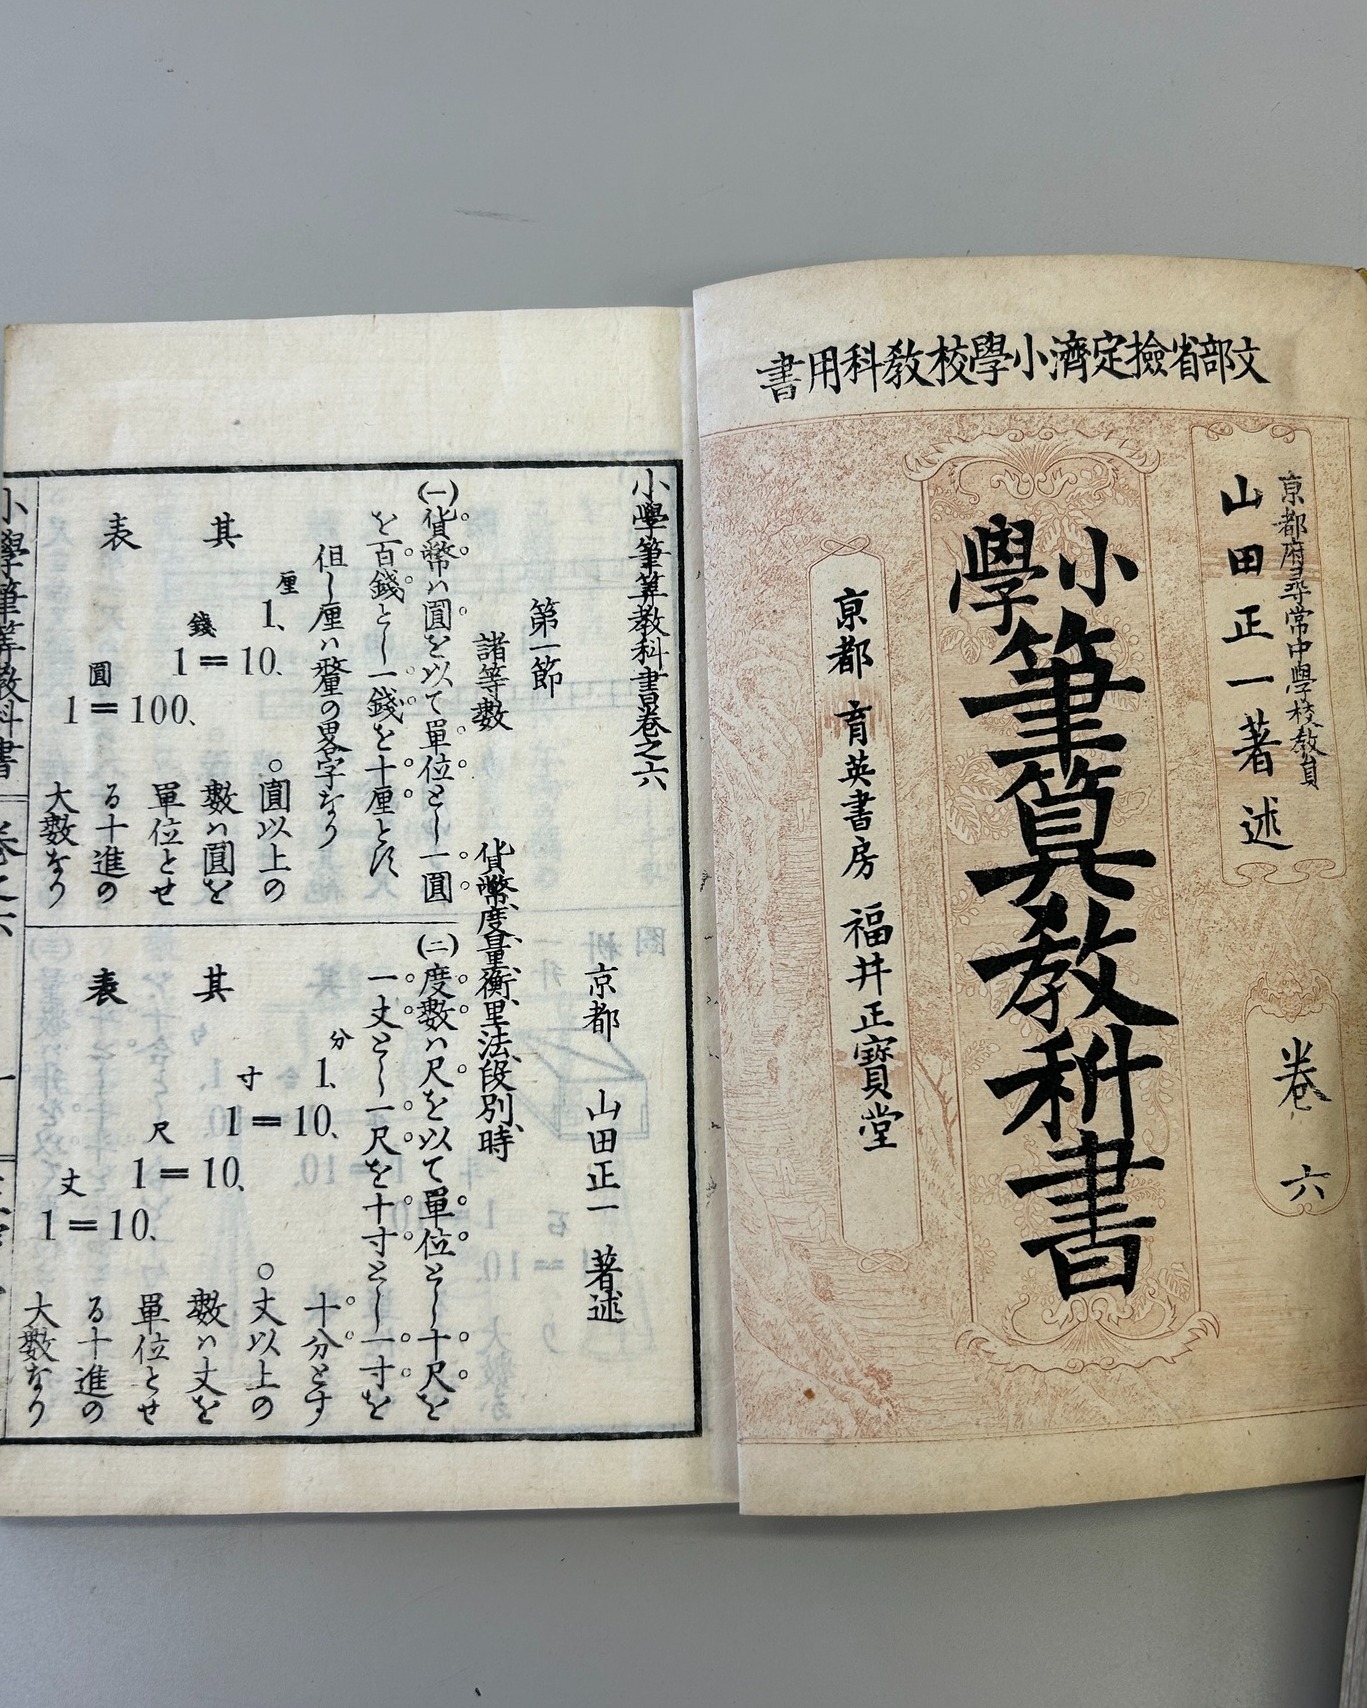 文部省撿定濟小學校教科用書
京都府尋常中學校教員
山田正一著述
卷六
小學筆算教科書
京都 育英書房 福井正寶堂
小學筆算教科書卷之六
京都 山田正一 著述
第一節
諸等數 貨幣、度量衡、里法、段別、時、
(一)貨幣ハ圓を以て單位とし一圓
を百錢とし一錢を十厘とす
但し厘ハ釐の畧字なり
其表
厘
1、
錢
1=10、
圓
1=100、
○圓以上の
數ハ圓を
單位とせ
る十進の
大數なり
(二)度數ハ尺を以て單位とし十尺を
一丈とし一尺を十寸とし一寸を
十分とす
其表
分
1、
寸
1=10、
尺
1=10、
丈
1=10、
○丈以上の
數ハ丈を
單位とせ
る十進の
大數なり
小學筆算教科書 卷之六